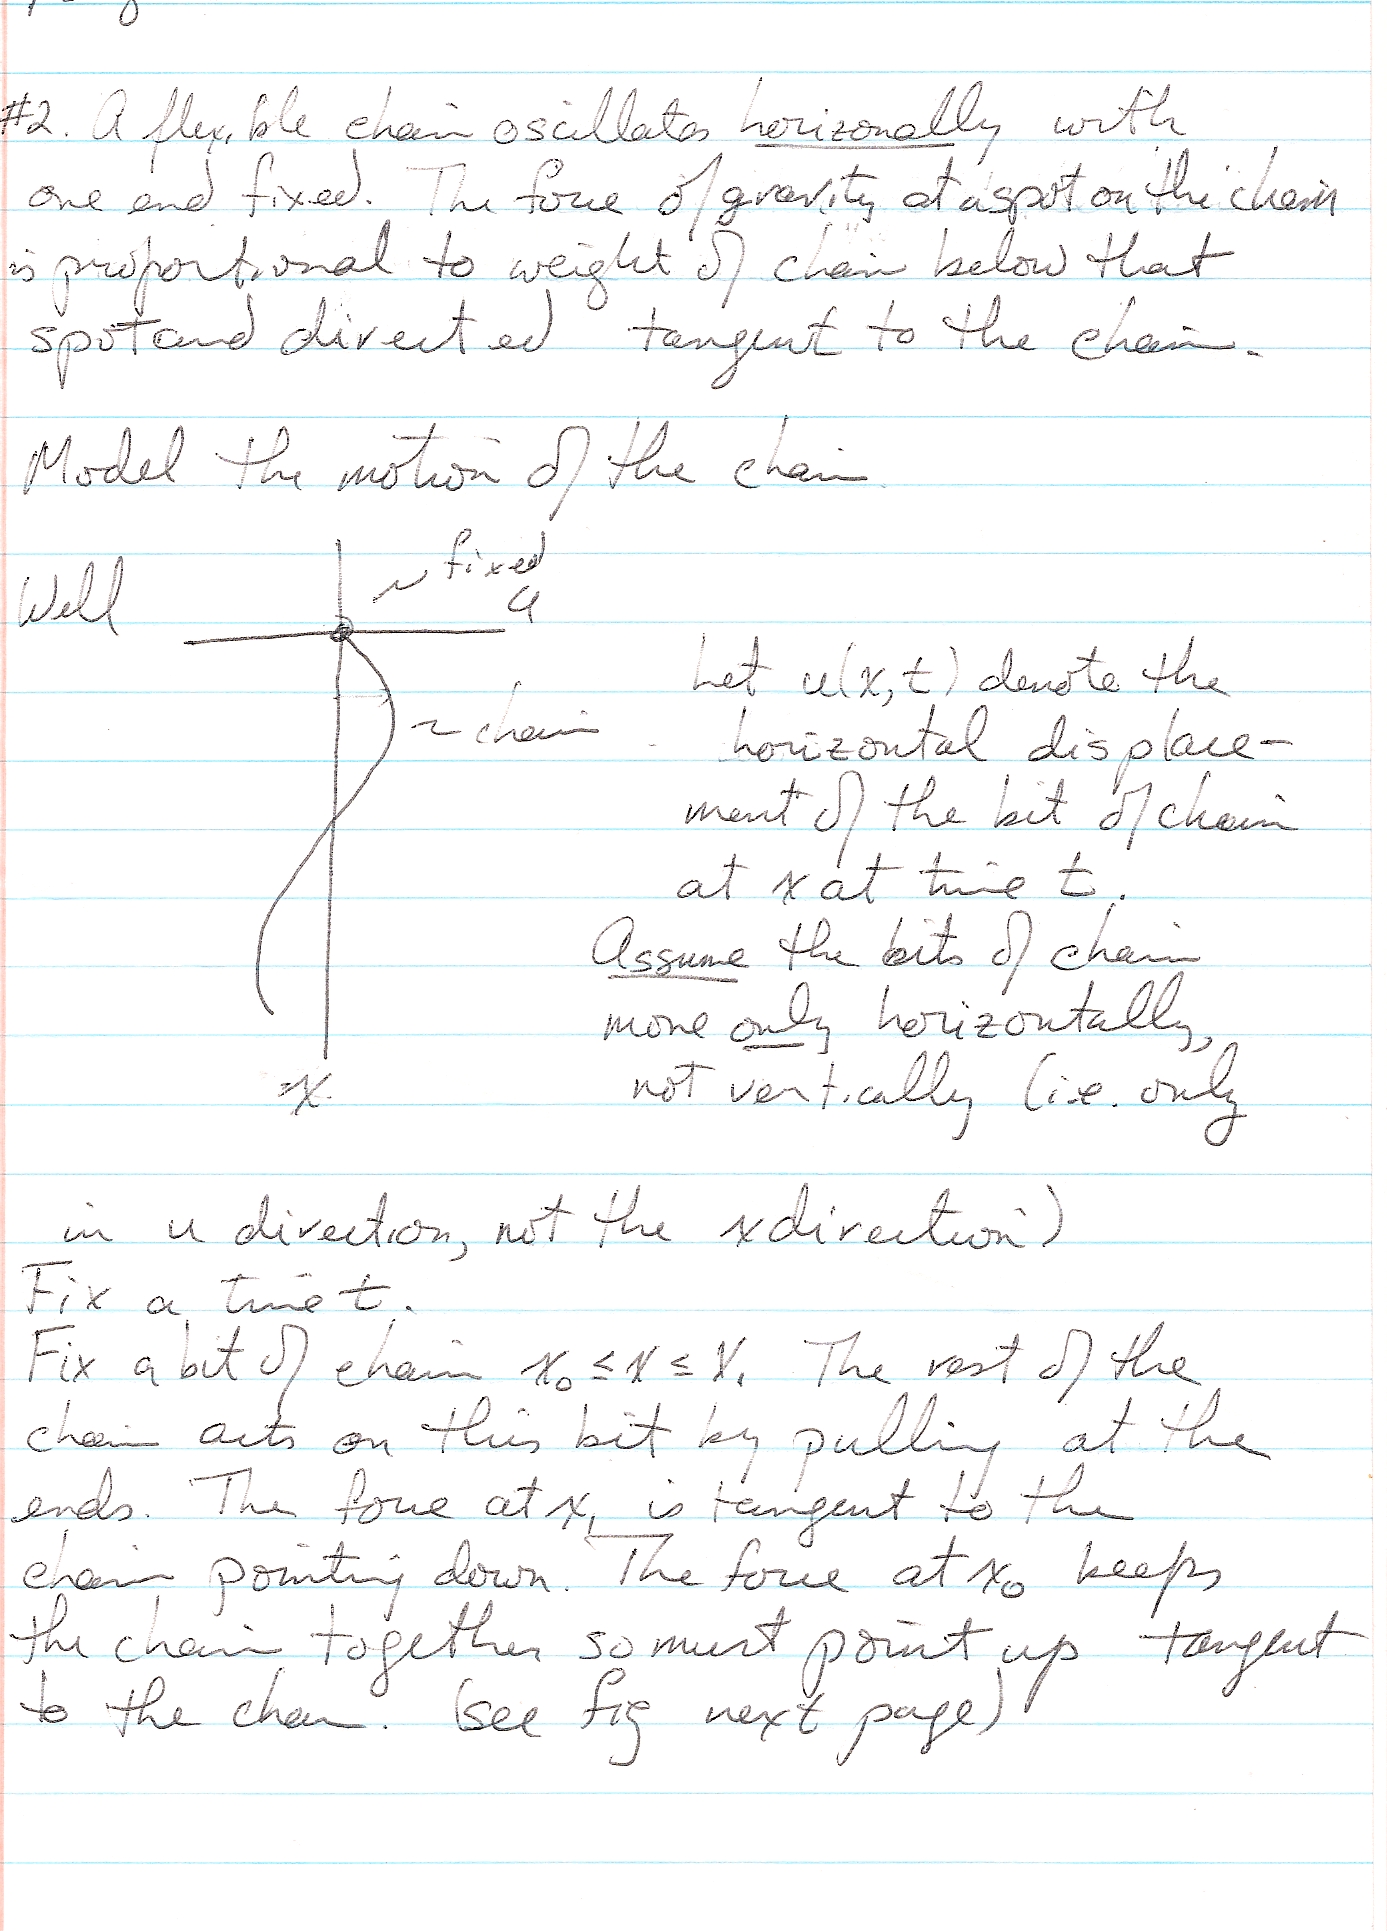 #2. A flexible chain oscillates horizonally with
one end fixed. The force of gravity at a spot on the chain
is proportional to weight of chain below that
spot and directed tangent to the chain.
Model the motion of the chain.
Well
~ fixed
u
~ chain
x
Let u(x,t) denote the
horizontal displace-
ment of the bit of chain
at x at time t.
Assume the bits of chain
move only horizontally,
not vertically (i.e. only
in u direction, not the x direction)
Fix a time t.
Fix a bit of chain x₀ ≤ x ≤ x₁ The rest of the
chain acts on this bit by pulling at the
ends. The force at x₁ is tangent to the
chain pointing down. The force at x₀ keeps
the chain together so must point up tangent
to the chain. (see fig next page)